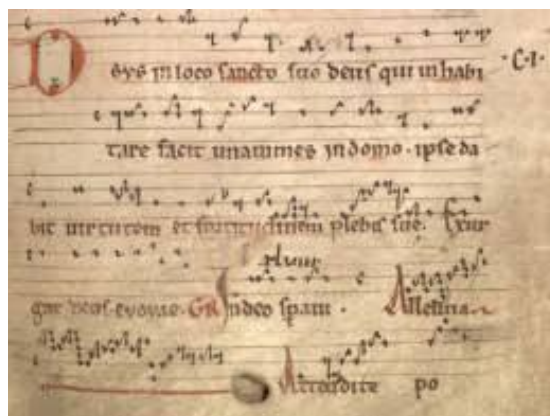 Deus in loco sancto suo deus qui in habi · C · I ·
tare facit unanimes in domo · ipse da
bit uirtutem et fortitudinem plebis sue. Exur
gat deus. euouae. GR In deo sperauit .  Alleluia
Attendite po